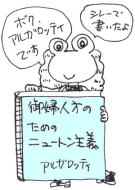 ボク
アルガロッティ
です
シレーで
書いたよ
御婦人方の
ための
ニュートン主義
アルガロッティ